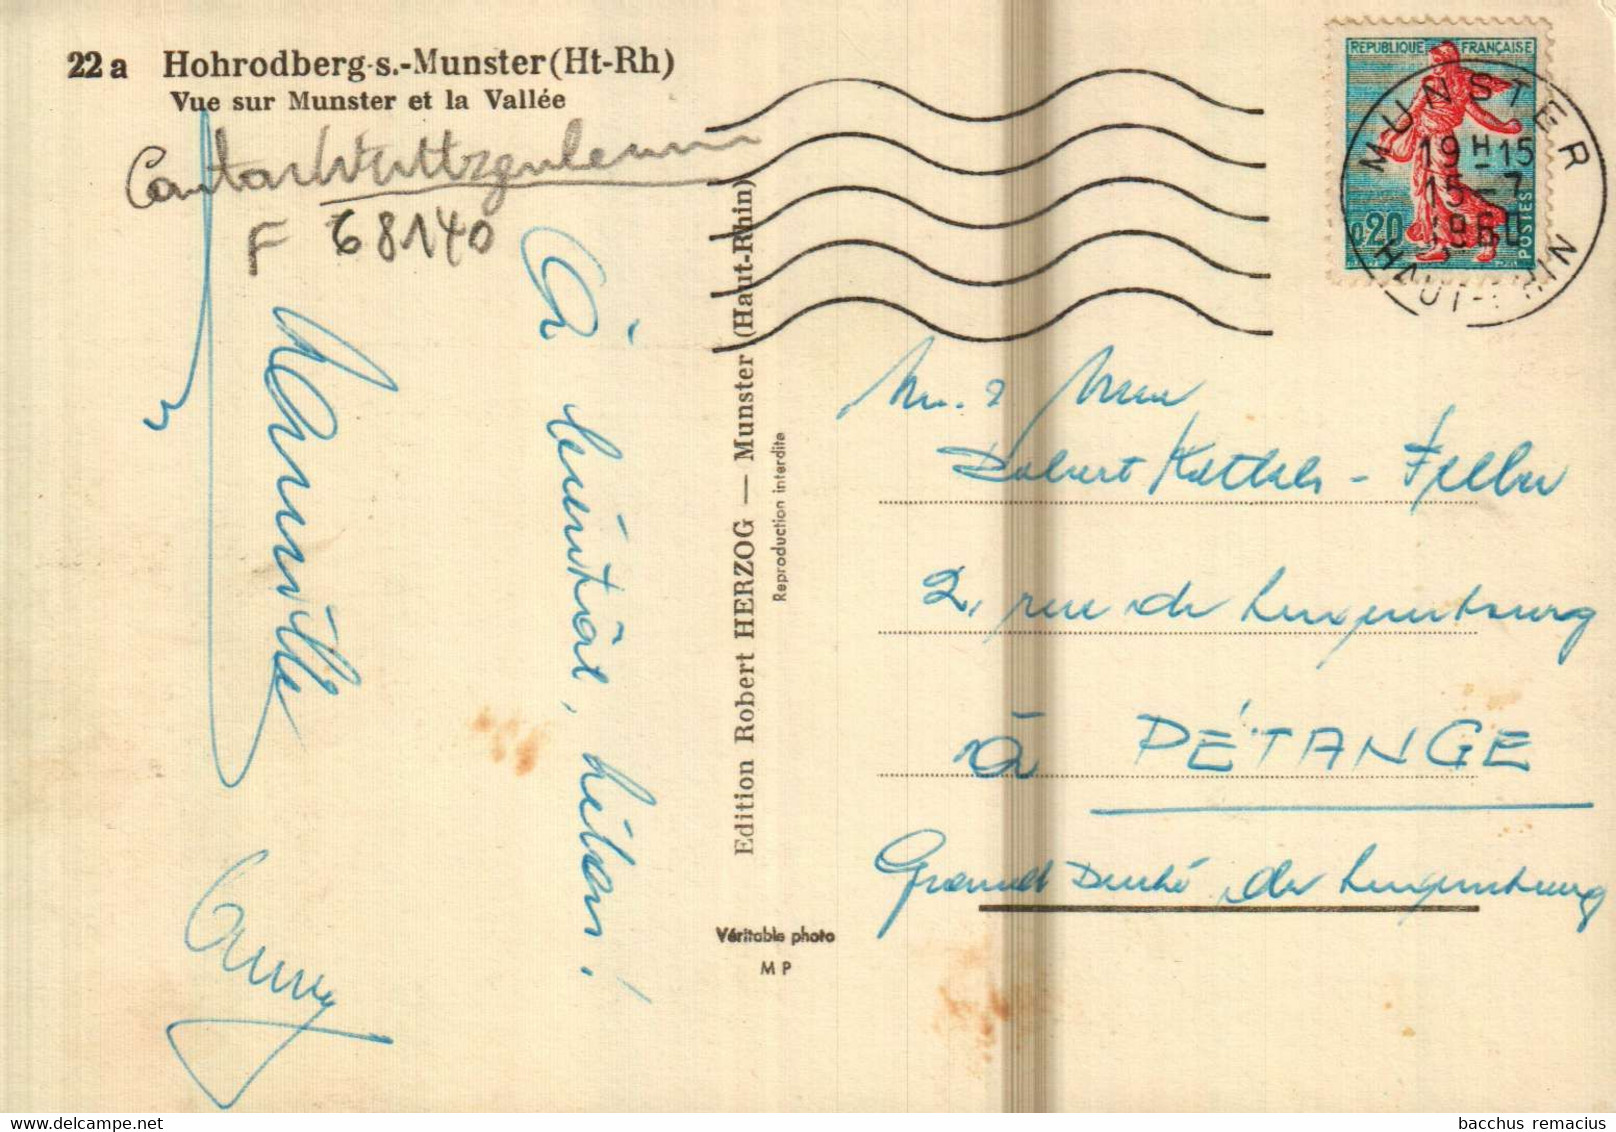 22 a Hohrodberg-s.-Munster (Ht-Rh)
Vue sur Munster et la Vallée
Canton Wettzgulenni
F 68140
À bientôt, hélas!
Edition Robert HERZOG — Munster (Haut-Rhin)
Reproduction interdite
Véritable photo
M P
REPUBLIQUE FRANÇAISE
0,20
POSTES
MUNSTER
19 H 15
15 - 7
1960
HAUT-RHIN
Robert
2, rue de Luxembourg
à PÉTANGE
Grand Duché de Luxembourg
bacchus remacius